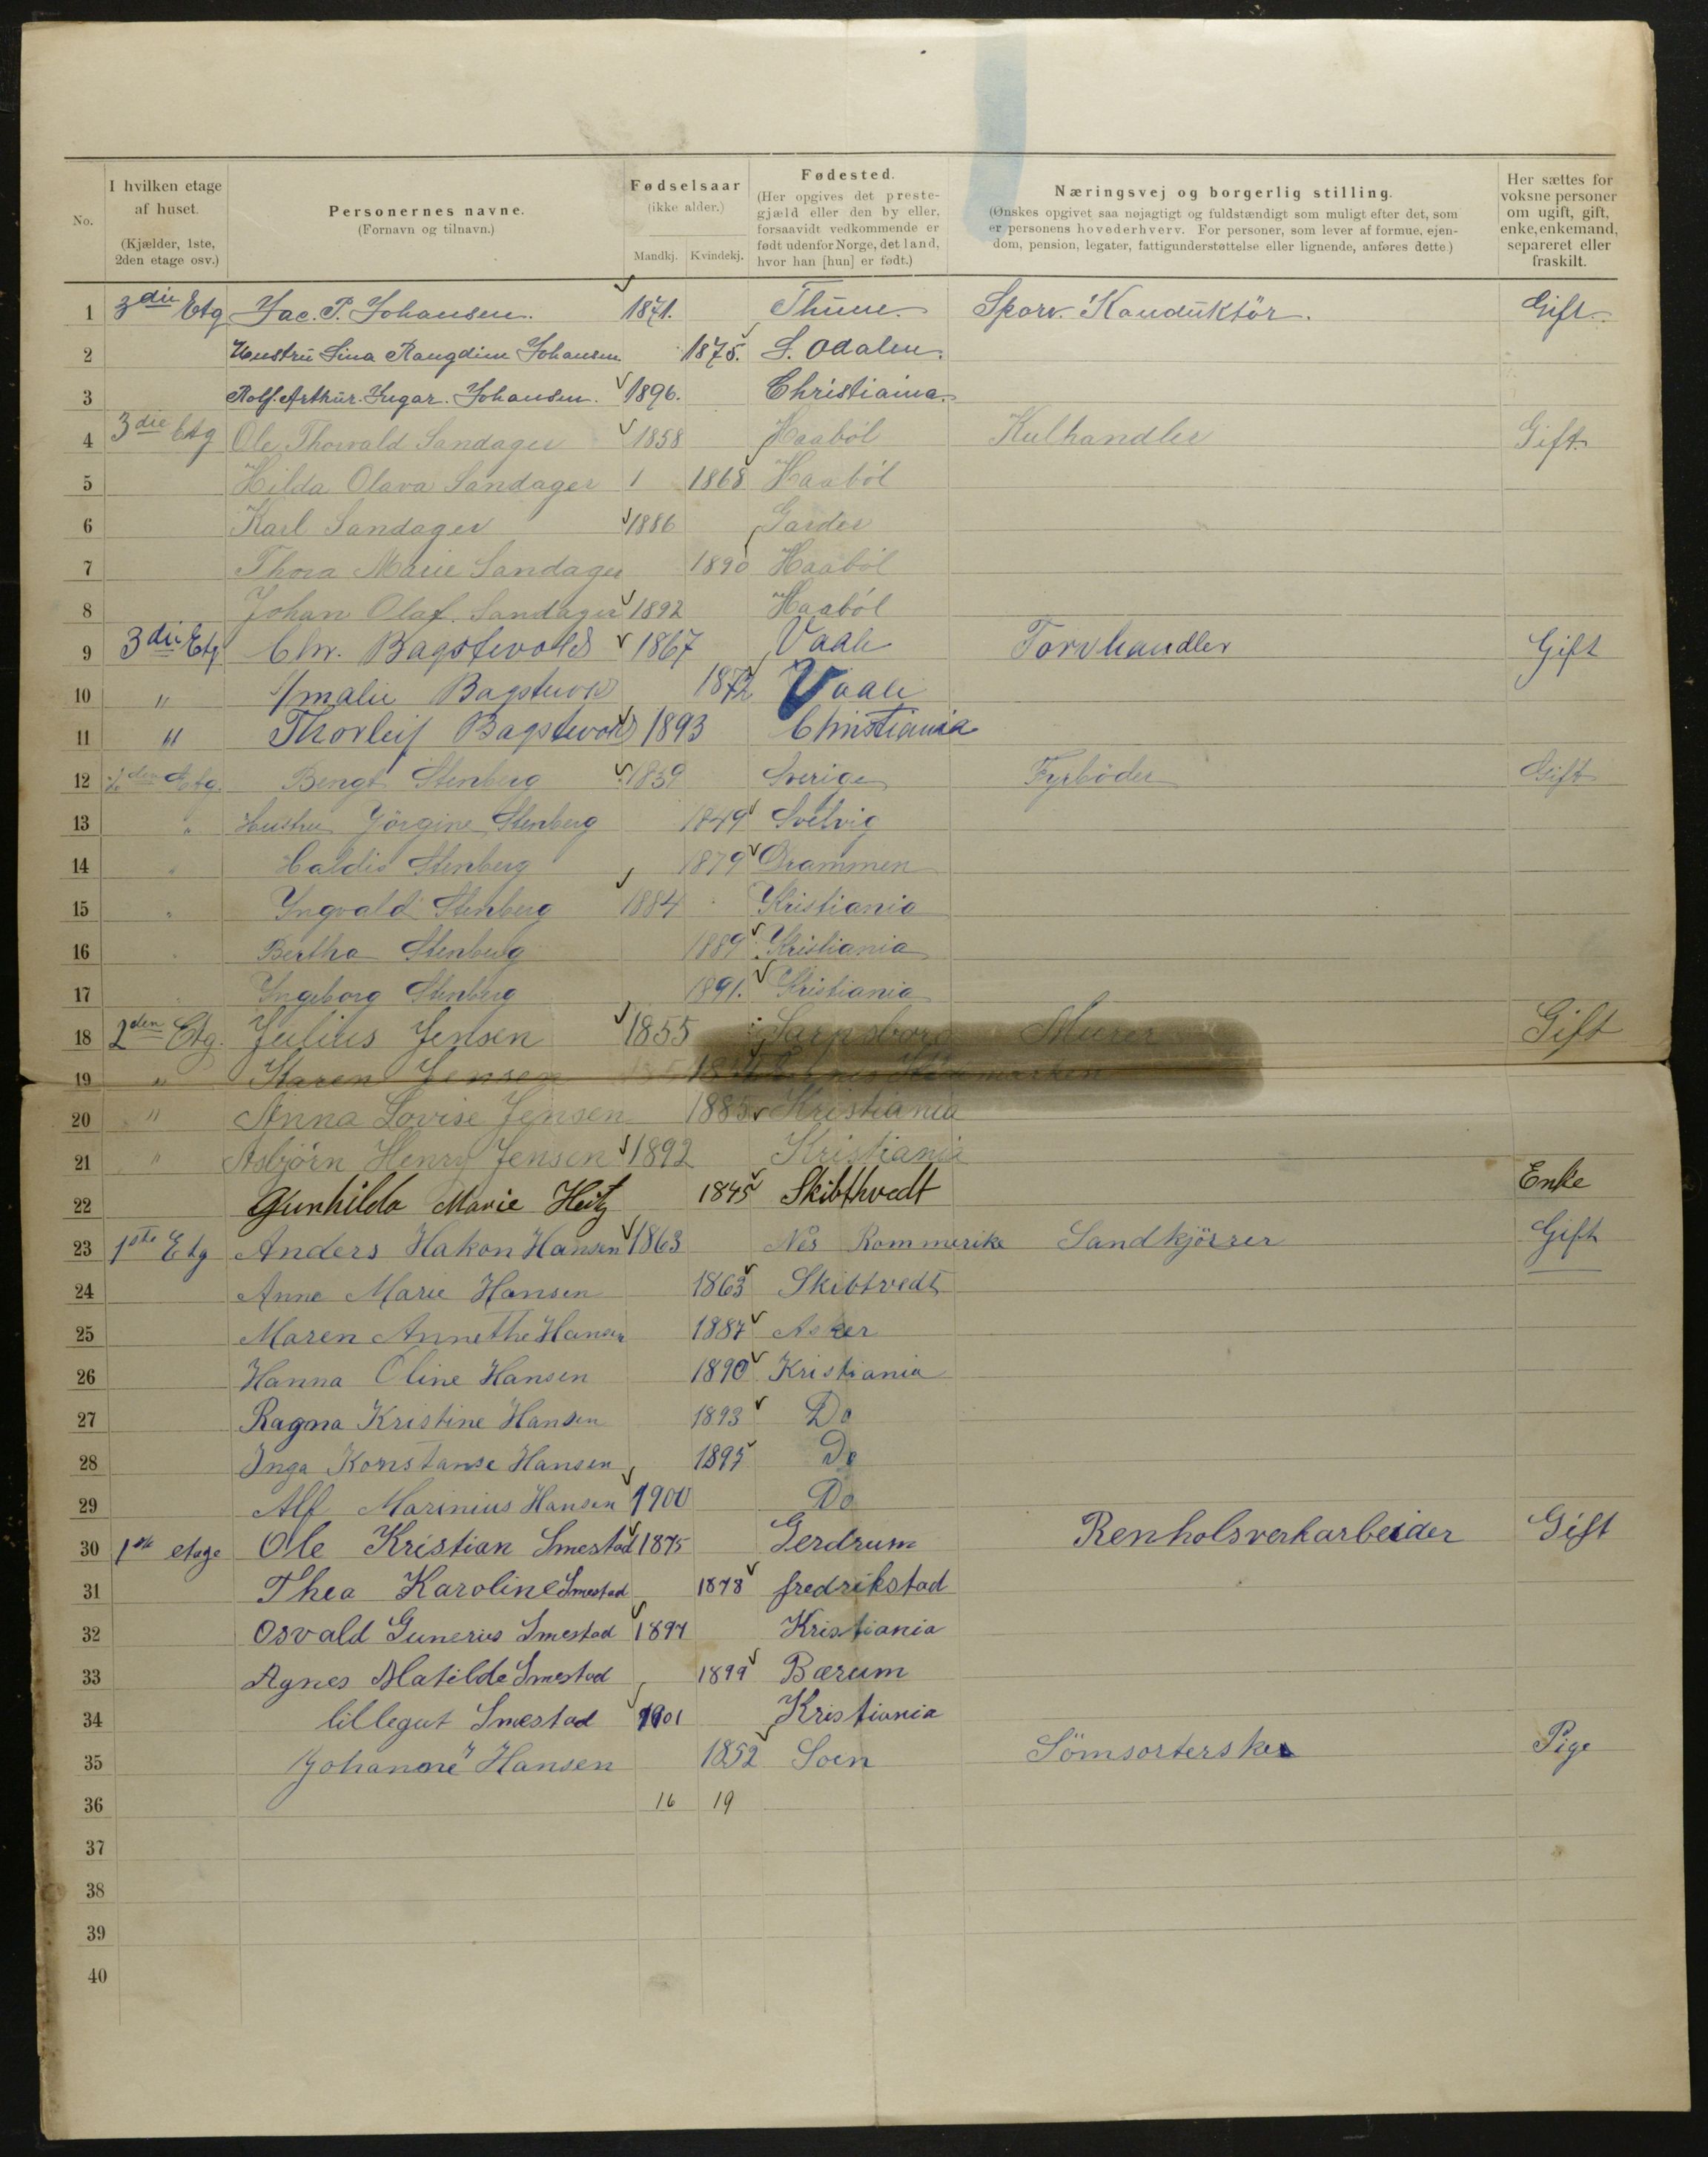 No. I hvilken etage af huset. (Kjælder, 1ste, 2den etage osv.) Personernes navne. (Fornavn og tilnavn.) Fødselsaar (ikke alder.) Mandkj. Kvindekj. Fødested. (Her opgives det prestegjæld eller den by eller, forsaavidt vedkommende er født udenfor Norge, det land, hvor han [hun] er født.) Næringsvej og borgerlig stilling. (Ønskes opgivet saa nøjagtigt og fuldstændigt som muligt efter det, som er personens hovederhverv. For personer, som lever af formue, ejendom, pension, legater, fattigunderstøttelse eller lignende, anføres dette.) Her sættes for voksne personer om ugift, gift, enke, enkemand, separeret eller fraskilt.
1 3die Etg Jac. P. Johansen. 1871. Thune. Sporv. Konduktör. Gift.
2 Hustru Lina Raugdine Johansen 1875. S. Odalen.
3 Rolf. Arthur. Ingar. Johansen. 1896. Christiania.
4 3die Etg Ole Thorvald Sandager 1858 Haaböl Kulhandler Gift.
5 Hilda Olava Sandager 1868 Haaböl
6 Karl Sandager 1886 Garder
7 Thora Marie Sandager 1890 Haaböl
8 Johan Olaf. Sandager 1892 Haaböl
9 3die Etg Chr. Bagstevold 1867 Vaale Torvhandler Gift
10 " Amalie Bagstevold 1872 Vaale
11 " Thorleif Bagstevold 1893 Christiania
12 2den Etg. Bengt Stenberg 1839 Sverige Fyrböder Gift
13 " Hustru Jörgine Stenberg 1849 Svelvig
14 " Haldis Stenberg 1879 Drammen
15 " Yngvald Stenberg 1884 Kristiania
16 " Bertha Stenberg 1889 Kristiania
17 " Ingeborg Stenberg 1891. Kristiania
18 2den Etg. Julius Jensen 1855 Sarpsborg Murer Gift
19 " Karen Jensen
20 " Anna Lovise Jensen 1885 Kristiania
21 " Asbjörn Henry Jensen 1892 Kristiania
22 Gunhilda Marie Heitz 1845 Skibthvedt Enke
23 1ste Etg Anders Hakon Hansen 1863 Nes Rommerike Sandkjörrer Gift
24 Anne Marie Hansen 1863 Skibtvedt
25 Maren Annethe Hansen 1887 Asker
26 Hanna Oline Hansen 1890 Kristiania
27 Ragna Kristine Hansen 1893 Do
28 Inga Konstanse Hansen 1895 Do
29 Alf Marinius Hansen 1900 Do
30 1ste etage Ole Kristian Smestad 1875 Gerdrum Renholsverkarbeider Gift
31 Thea Karoline Smestad 1878 fredrikstad
32 Osvald Gunerius Smestad 1897 Kristiania
33 Agnes Matilde Smestad 1899 Bærum
34 lillegut Smestad 1901 Kristiania
35 Johanne Hansen 1852 Soen Sömsorterske Pige
36 16 19
37
38
39
40